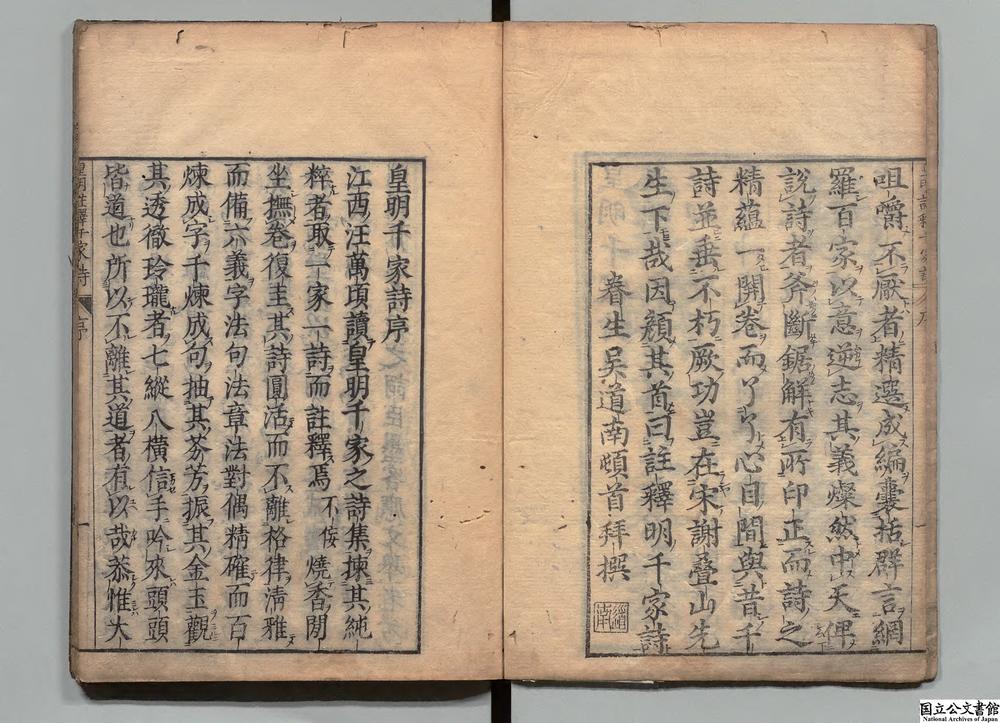 咀嚼不厭者精選成編囊括群言網
羅百家以意逆志其義燦然中天俾
說詩者斧斷鋸解有所印正而詩之
精蘊一開卷而了了心目間與昔千
詩並垂不朽厥功豈在宋謝疊山先
生下哉因顏其首曰註釋明千家詩
眷生吳道南頓首拜撰
皇明千家詩序
江西汪萬頃讀皇明千家之詩集揀其純
粹者取一家一詩而註釋焉不佞燒香閒
坐撫卷復圭其詩圓活而不離格律淸雅
而備六義字法句法章法對偶精確而百
煉成字千煉成句抽其芬芳振其金玉觀
其透徹玲瓏者七縱八橫信手吟來頭頭
皆道也所以不離其道者有以哉恭惟大
皇明註釋千家詩
序
一
国立公文書館
National Archives of Japan